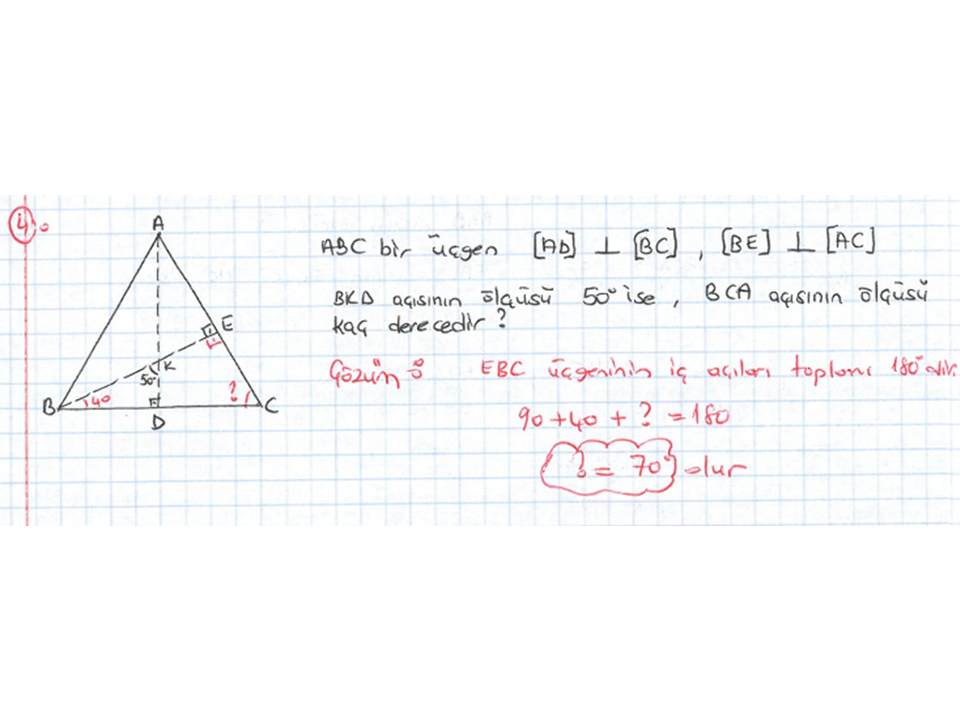 4.
A
E
K
50°
B
40
?
C
D
ABC bir üçgen [AD] ⊥ [BC] , [BE] ⊥ [AC]
BKD açısının ölçüsü 50° ise , BCA açısının ölçüsü
kaç derecedir ?
Çözüm : EBC üçgeninin iç açıları toplamı 180° dir.
90 + 40 + ? = 180
? = 70° olur